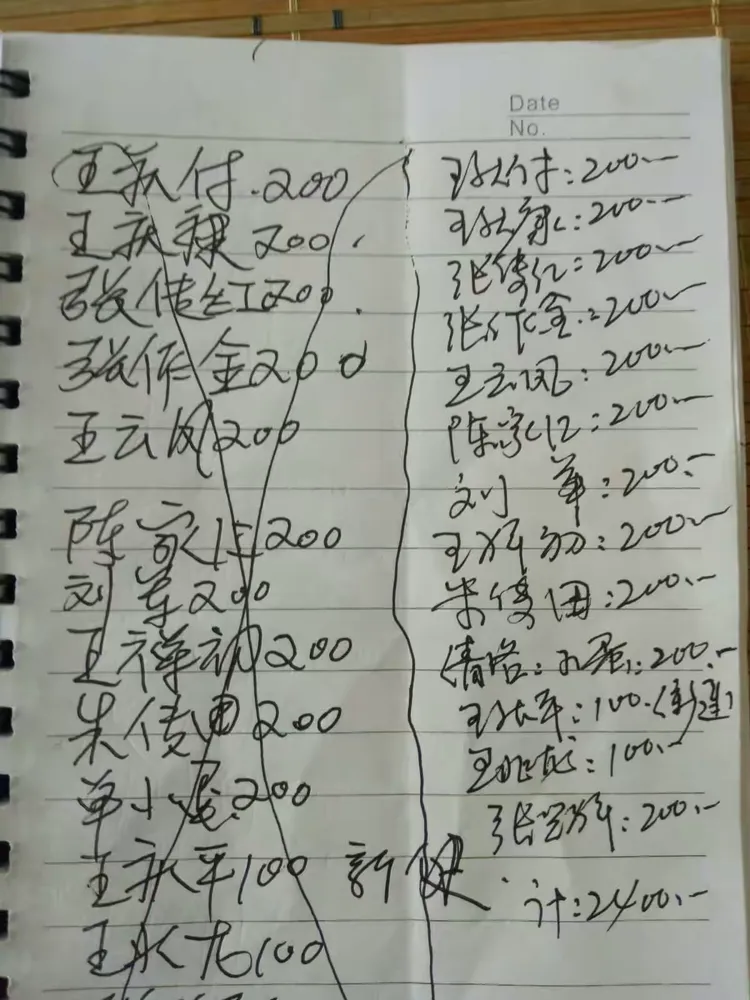 Date
No.
王永付.200
王永禄 200.
张传红200.
张作金200
王云凤200
陈家仁200
刘军200
王祥初200
朱传田200
单小磊200
王永平100 新建
王永龙100
王永付:200.-
王永:200.-
张传红:200.-
张作金:200.-
王云凤:200.-
陈家仁:200.-
刘 军:200.-
王祥初:200.-
朱传田:200.-
:200.-
王永军:100.
王永龙:100.-
张:200.-
计:2400.-